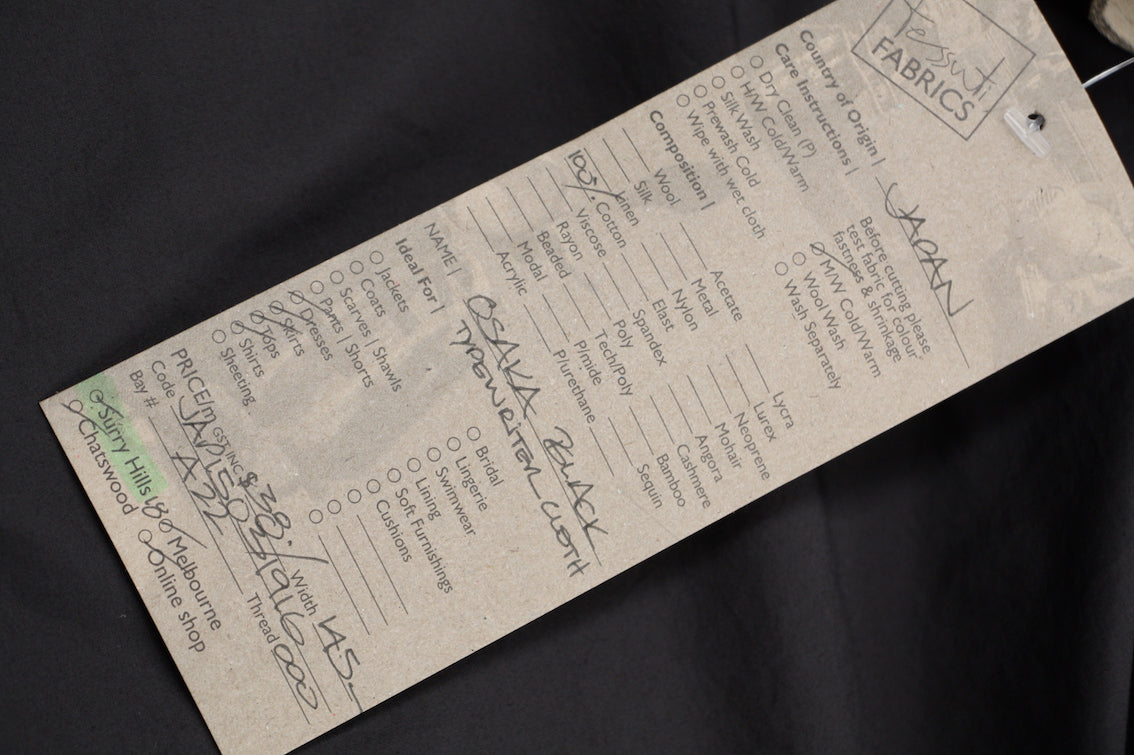 Tessuti
FABRICS
Country of Origin | JAPAN
Care Instructions |
Before cutting please
test fabric for colour
fastness & shrinkage
Dry Clean (P)
H/W Cold/Warm
Silk Wash
Prewash Cold
Wipe with wet cloth
M/W Cold/Warm
Wool Wash
Wash Separately
Composition |
Wool
Silk
Linen
100% Cotton
Viscose
Rayon
Beaded
Modal
Acrylic
Acetate
Metal
Nylon
Elast
Spandex
Poly
Tech/Poly
P/mide
P/urethane
Lycra
Lurex
Neoprene
Mohair
Angora
Cashmere
Bamboo
Sequin
NAME | OSAKA BLACK
TYPEWRITER CLOTH
Ideal For |
Jackets
Coats
Scarves | Shawls
Pants | Shorts
Dresses
Skirts
Tops
Shirts
Sheeting
Bridal
Lingerie
Swimwear
Lining
Soft Furnishings
Cushions
PRICE/m GST INC $38.- Width 145-
Code
Bay # A22 Thread 000
Surry Hills Melbourne
Chatswood Online shop